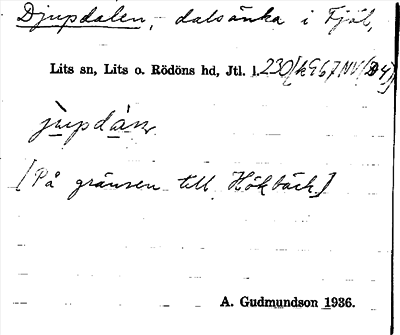 Djupdalen, dalsänka i Fjäl,
Lits sn, Lits o. Rödöns hd, Jtl. l. 230
jupdàn
[På gränsen till Hökbäck.]
A. Gudmundson 1936.